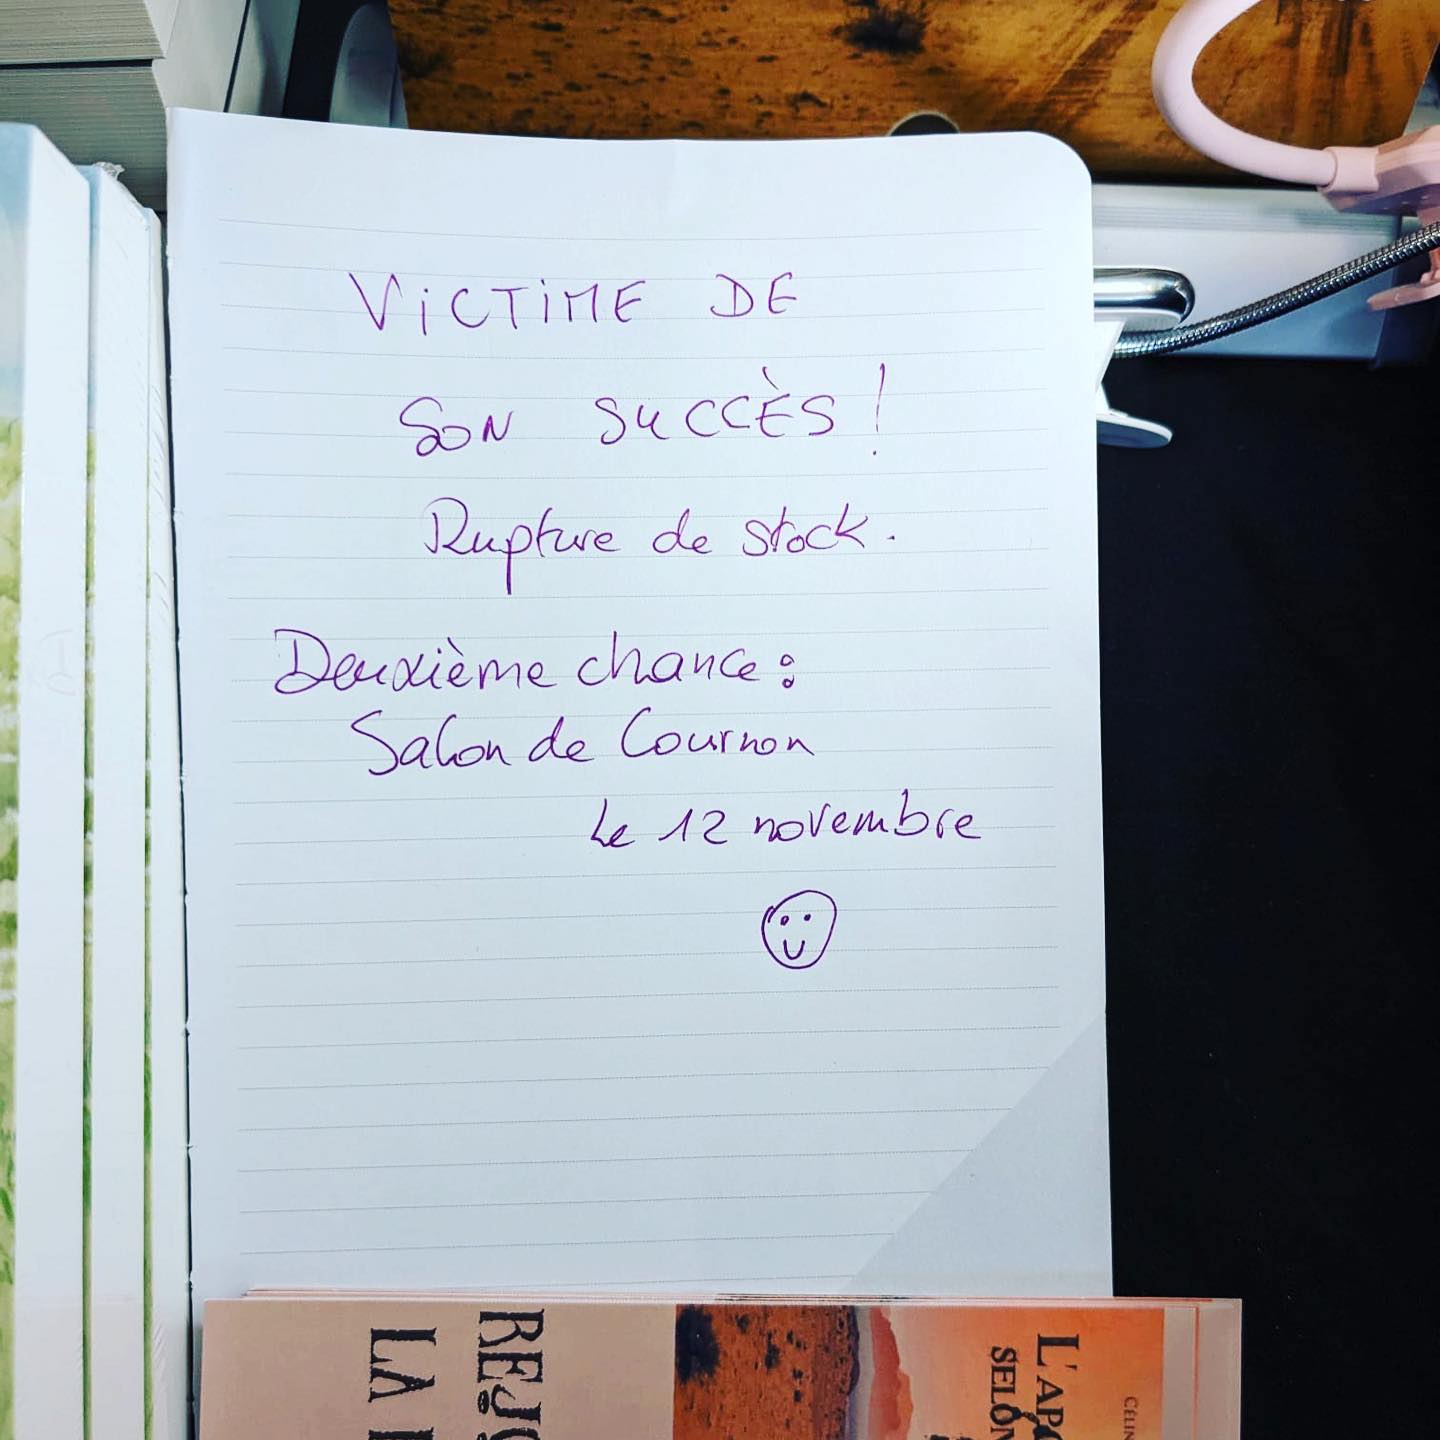 VICTIME DE
SON SUCCÈS !
Rupture de stock.
Deuxième chance :
Salon de Cournon
Le 12 novembre
L'APO
SELON
CÉLIN
REJO
LA